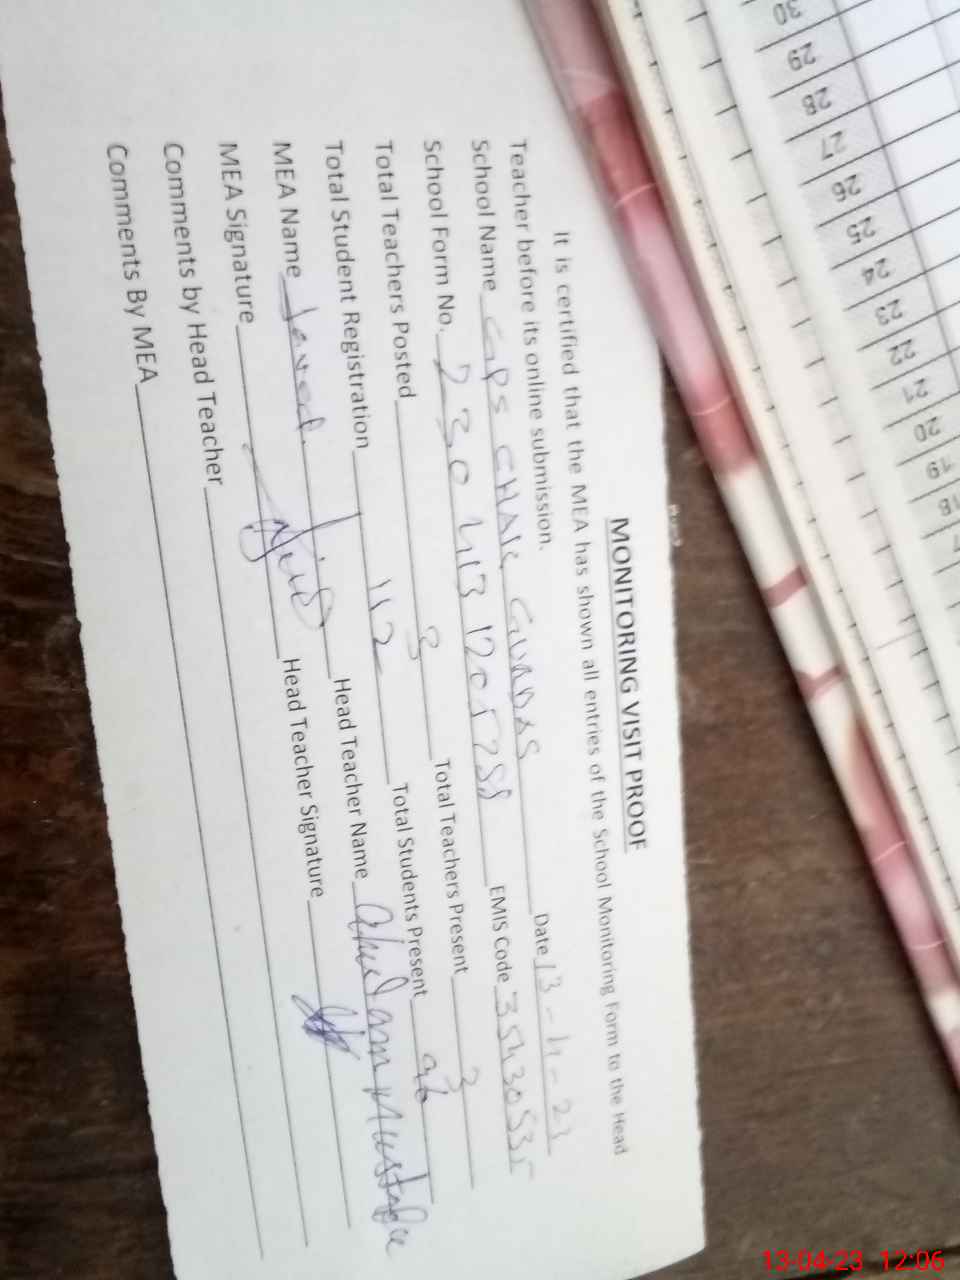 MONITORING VISIT PROOF
It is certified that the MEA has shown all entries of the School Monitoring Form to the Head
Teacher before its online submission.
Date 13-4-23
School Name GPS CHAK GUNDAS EMIS Code 35430535
School Form No. 2304131205255
Total Teachers Posted 3 Total Teachers Present 3
Total Student Registration 112 Total Students Present 96
MEA Name Javed Head Teacher Name Mustafa
MEA Signature Head Teacher Signature
Comments by Head Teacher
Comments By MEA
30
29
28
27
26
25
24
23
22
21
20
19
18
13-04-23 12:06